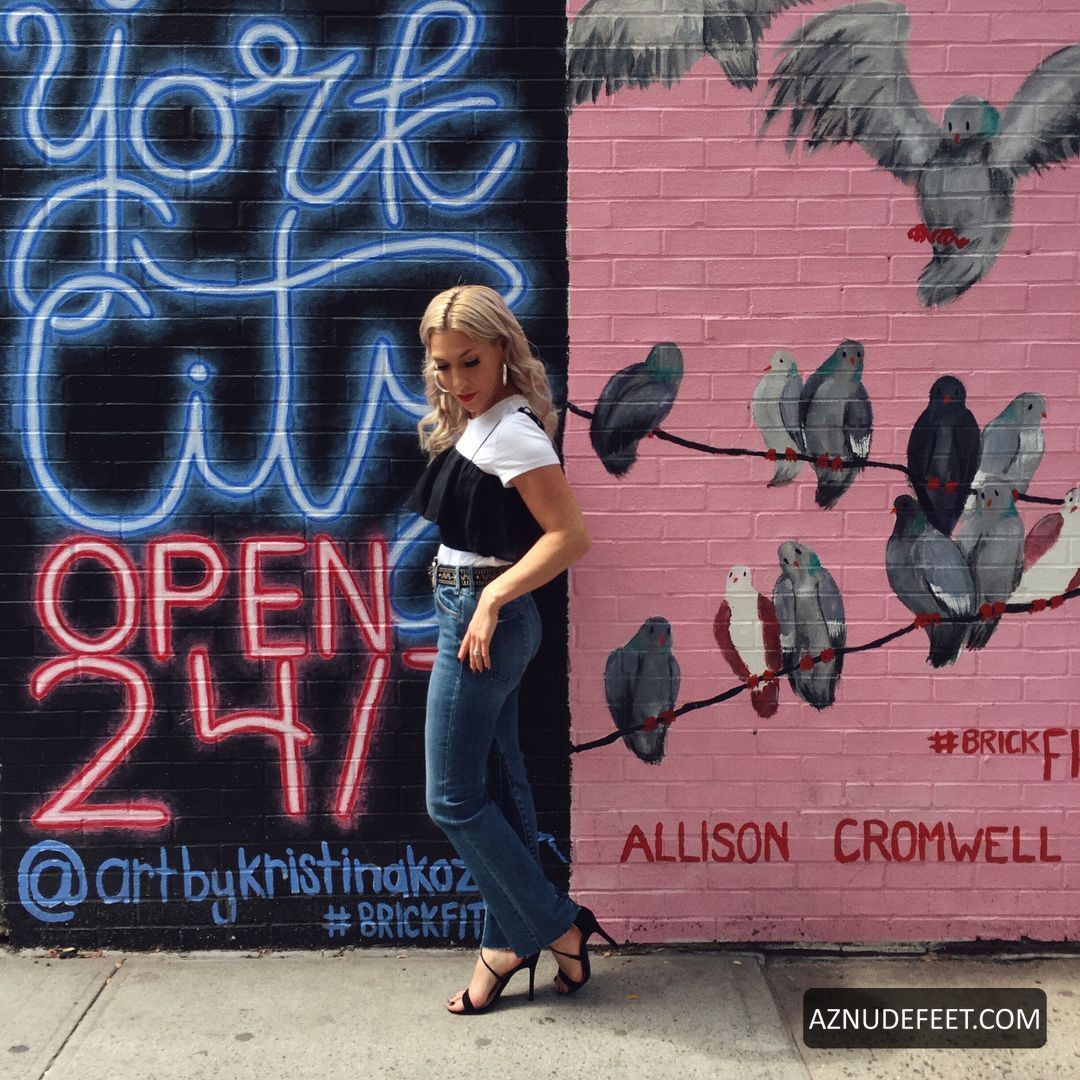 york
City
OPEN
24/
@artbykristinakoz
#BRICKFIT
#BRICKFI
ALLISON CROMWELL
AZNUDEFEET.COM